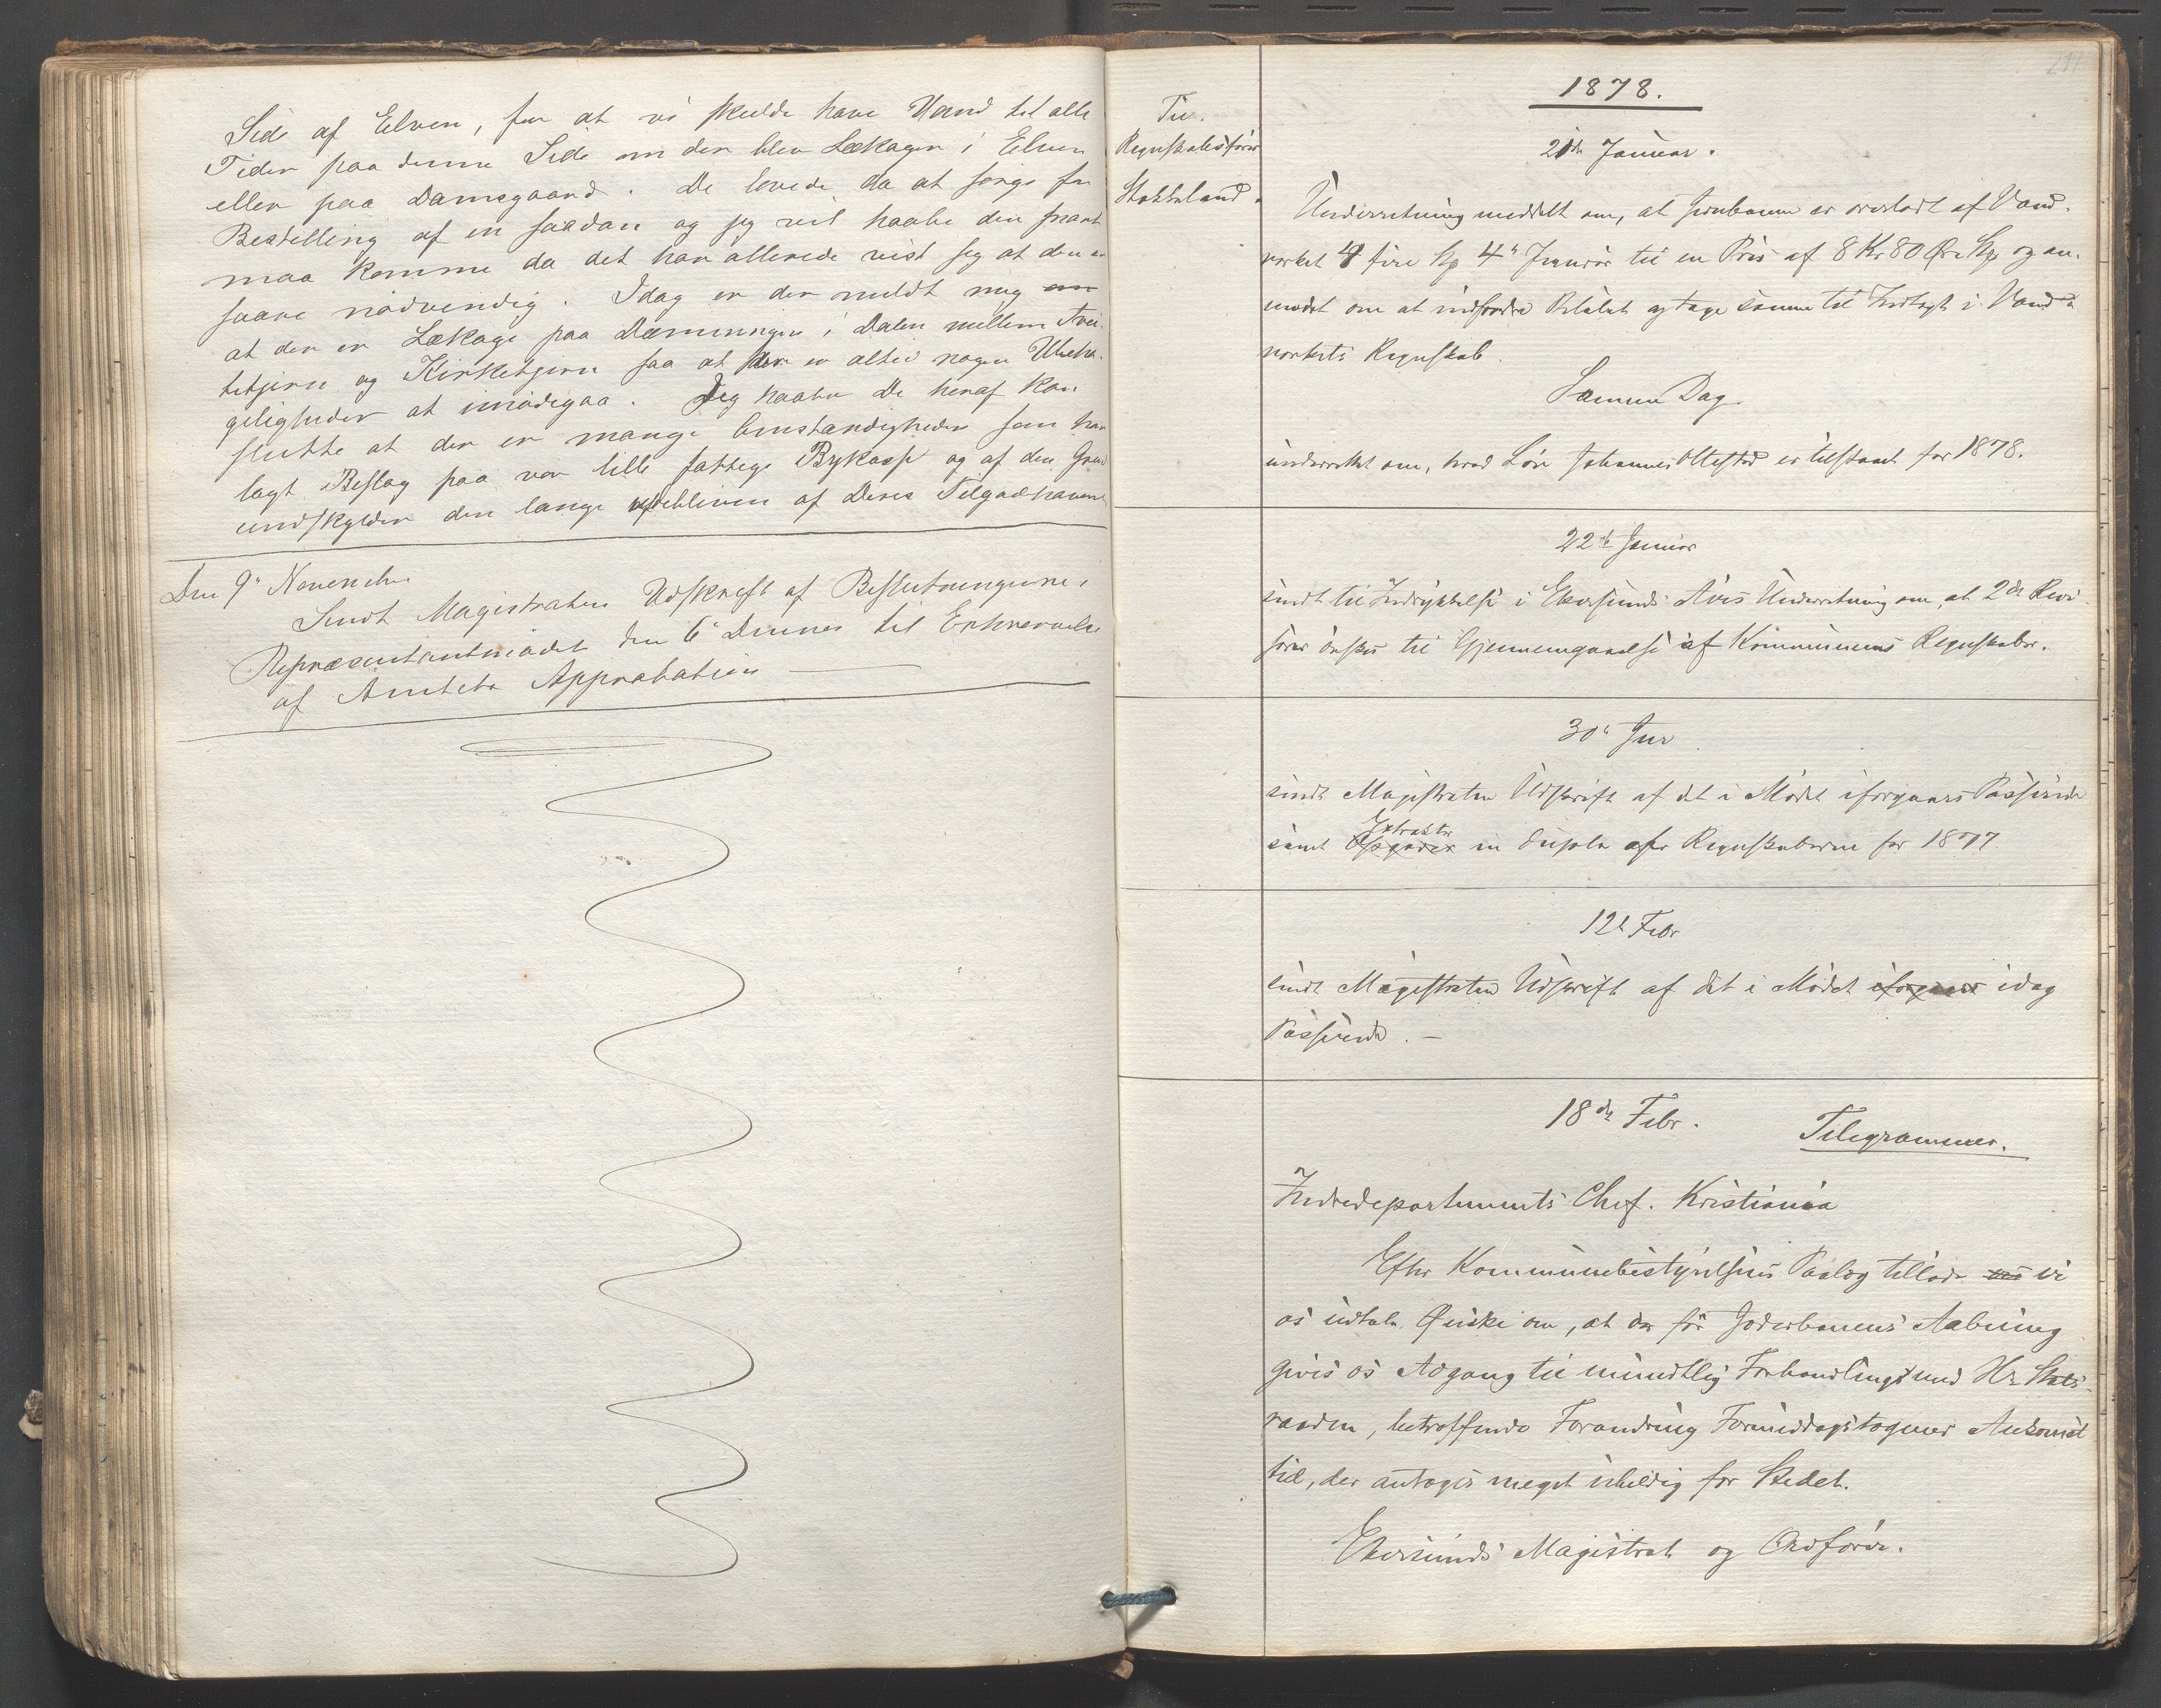 Side af Elven, for at vi skulde have Vand til alle
Tider paa denne Side om der blev Lækager i Elven
eller paa Damsgaard. De lovede da at sørge for
Bestilling af en saadan og jeg vil haabe den snart
maa komme da det har allerede vist sig at den er
saare nødvendig. Idag er der meldt mig om
at der er Lækage paa Dæmningen i Dalen mellem Svei-
tetjern og Kirketjern saa at der er altid nogen Ubeha-
geligheder at imødegaa. Jeg haaber De heraf kan
slutte at der er mange Omstændigheder som har
lagt Beslag paa vor lille fattige Bykasse og af den Grund
undskylder den lange Udebliven af Deres Tilgodehavende
Den 9de November
Sendt Magistraten Udskrift af Beslutningerne i
Repræsentantmødet den 6te Dennes til Erhvervelse
af Amtets Approbation
1878.
Til
Regnskabsfører
Stokkeland.
21de Januar.
Underretning meddelt om, at Jernbanen er overladt af Vand-
værket 4 fire Kg 4de Januar til en Pris af 8 Kr 80 Øre Kg og an-
modet om at indfordre Beløbet og tage samme til Indtægt i Vand-
værkets Regnskab.
Samme Dag
underrettet om, hvad Løn Johannes Ollestad er tilstaaet for 1878.
22de Januar
sendt til Indrykkelse i Ekersunds Avis Underretning om, at 2de Revi-
sorer ønskes til Gjennemgaaelse af Kommunens Regnskaber.
30te Jnr
sendt Magistraten Udskrift af det i Mødet iforgaars Passerede
samt Extracter in duplo af Regnskaberne for 1877
12te Febr
sendt Magistraten Udskrift af det i Mødet iforgaars idag
Passerede. —
18de Febr. Telegrammer.
Indredepartements Chef. Kristiania
Efter Kommunebestyrelsens Paalæg tillade vi
os udtale Ønske om, at der før Jæderbanens Aabning
gives os Adgang til mundtlig Forhandling med Hr. Stats-
raaden, betræffende Forandring Formiddagstogenes Ankomst
tid, der antages meget uheldig for Stedet.
Ekersunds Magistrat og Ordfører.